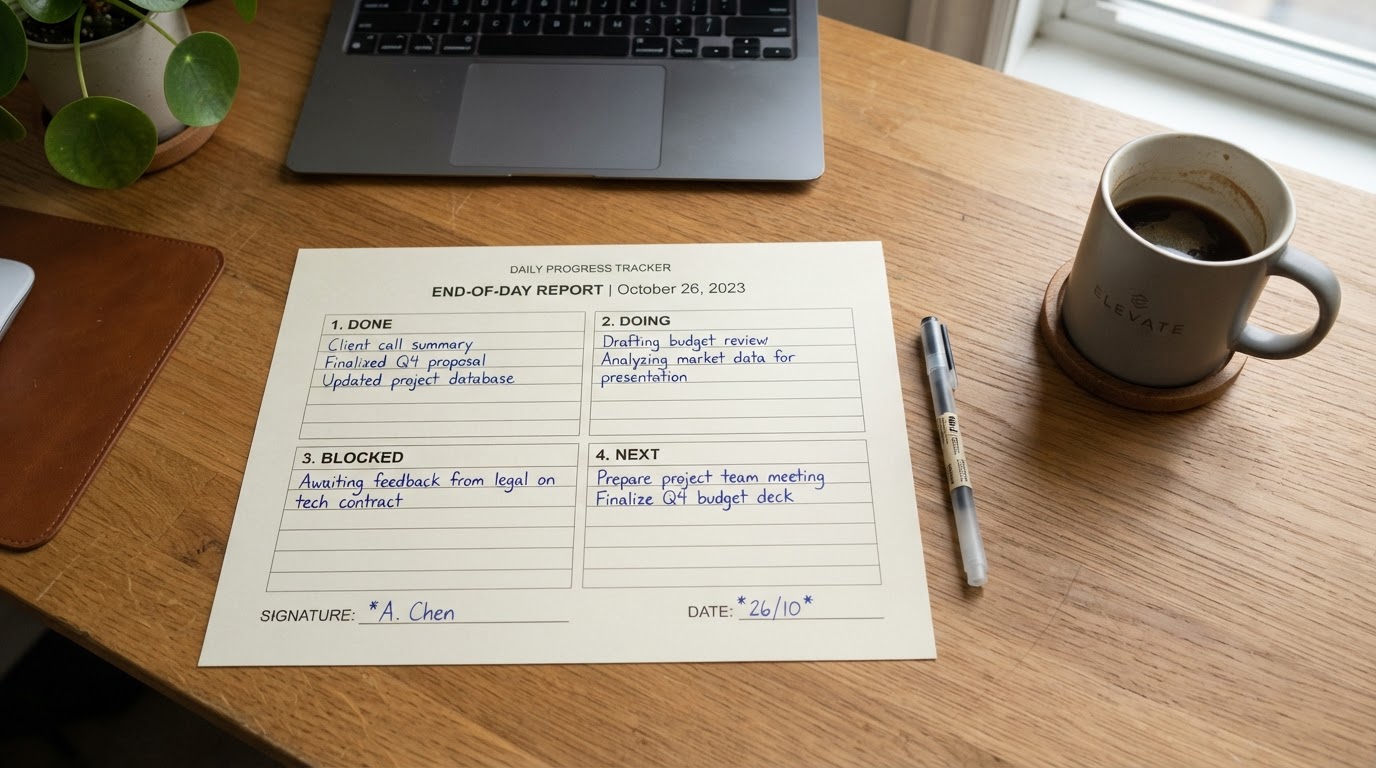 DAILY PROGRESS TRACKER
END-OF-DAY REPORT | October 26, 2023
1. DONE
Client call summary
Finalized Q4 proposal
Updated project database
2. DOING
Drafting budget review
Analyzing market data for
presentation
3. BLOCKED
Awaiting feedback from legal on
tech contract
4. NEXT
Prepare project team meeting
Finalize Q4 budget deck
SIGNATURE: *A. Chen
DATE: *26/10*
ELEVATE